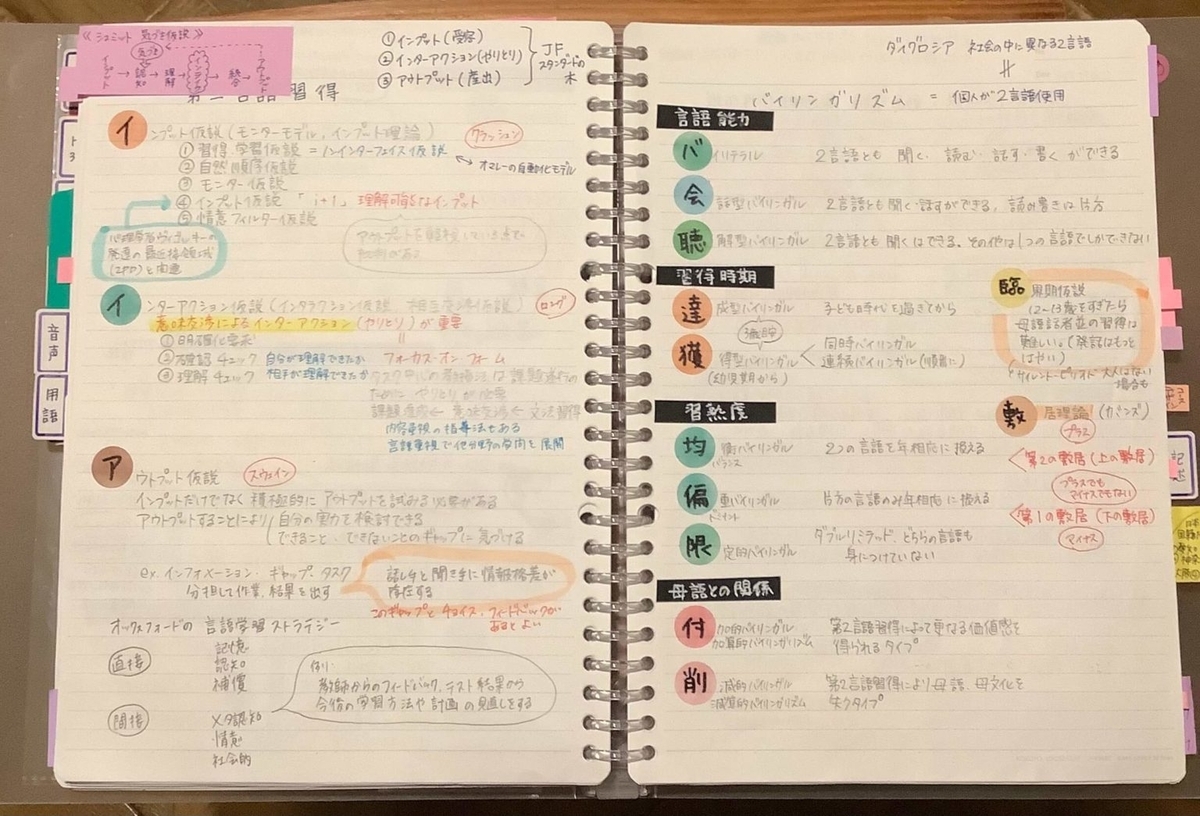 《シュミット 気づき仮説》
気づき
インプット→認知→理解→インテイク→統合→アウトプット
①インプット(受容)
②インターアクション(やりとり)
③アウトプット(産出)
JFスタンダードの木
第二言語習得
インプット仮説(モニターモデル、インプット理論) クラッシェン
①習得・学習仮説 = ノンインターフェイス仮説
オマレーの自動化モデル
②自然順序仮説
③モニター仮説
④インプット仮説 「i+1」理解可能なインプット
⑤情意フィルター仮説
心理学者ヴィゴツキーの
発達の最近接領域
(ZPD)と関連
アウトプットを軽視している点で
批判がある
インターアクション仮説(インタラクション仮説 相互交渉仮説) ロング
意味交渉によるインターアクション(やりとり)が重要
①明確化要求
②確認チェック 自分が理解できたか
フォーカス・オン・フォーム
③理解チェック 相手が理解できてたか
タスク中心の教授法は課題遂行の
ために やりとりが必要
課題達成← 意味交渉← 文法習得
内容重視の指導法もある
言語重視で他分野の学問を展開
アウトプット仮説 スウェイン
インプットだけでなく積極的にアウトプットを試みる必要がある
アウトプットすることにより 自分の実力を検討できる
できること・できないことのギャップに気づける
ex. インフォメーション・ギャップ・タスク
分担して作業、結果を出す
話し手と聞き手に情報格差が
存在する
このギャップと チョイス、フィードバックが
あるとよい
オックスフォードの 言語学習ストラテジー
直接
記憶
認知
補償
間接
メタ認知
情意
社会的
例)
教師からのフィードバック、テスト結果から
今後の学習方法や計画の見直しをする
音声
用語
ダイグロシア 社会の中に異なる2言語
バイリンガリズム = 個人が2言語使用
言語能力
バイリテラル 2言語とも 聞く・読む・話す・書く ができる
会話型バイリンガル 2言語とも聞く・話すができる、読み書きは片方
聴解型バイリンガル 2言語とも聞くはできる、その他は1つの言語でしかできない
習得時期
達成型バイリンガル 子ども時代を過ぎてから
獲得型バイリンガル
(幼児期から)
同時バイリンガル
連続バイリンガル(順番に)
臨界期仮説
12〜13歳をすぎたら
母語話者並の習得は
難しい。(発話はもっと
はやい)
サイレント・ピリオド 大人はない
場合も
習熟度
均衡バイリンガル 2つの言語を年相応に扱える
バランス
偏重バイリンガル 片方の言語のみ年相応に扱える
ドミナント
限定的バイリンガル ダブルリミテッド、どちらの言語も
身につけていない
敷居理論(カミンズ)
プラス
第2の敷居(上の敷居)
プラスでも
マイナスでもない
第1の敷居(下の敷居)
マイナス
母語との関係
付加的バイリンガル 第2言語習得によって更なる価値感を
加算的バイリンガリズム 得られるタイプ
削減的バイリンガル 第2言語習得により母語、母文化を
減算的バイリンガリズム 失うタイプ
記述